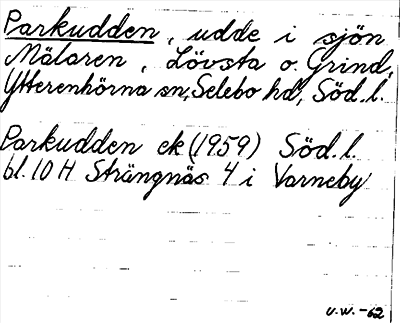 Parkudden, udde i sjön
Mälaren, Lövsta o. Grind,
Ytterenhörna sn, Selebo hd, Söd. l.
Parkudden ek (1959) Söd. l.
bl. 10 H Strängnäs 4 i Varneby
U.W. -62